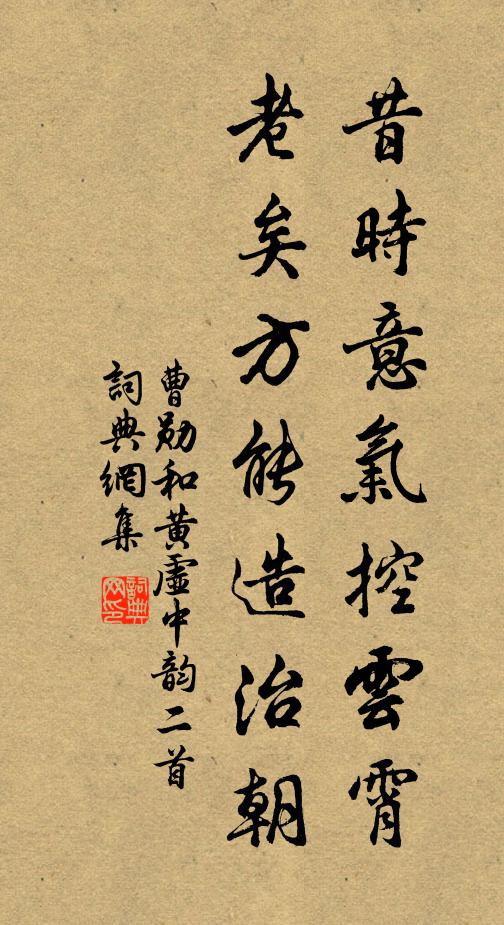 昔時意氣控雲霄
老矣方能造治朝
曹勛和黃虛中韵二首
詞典網集
詞典
网印